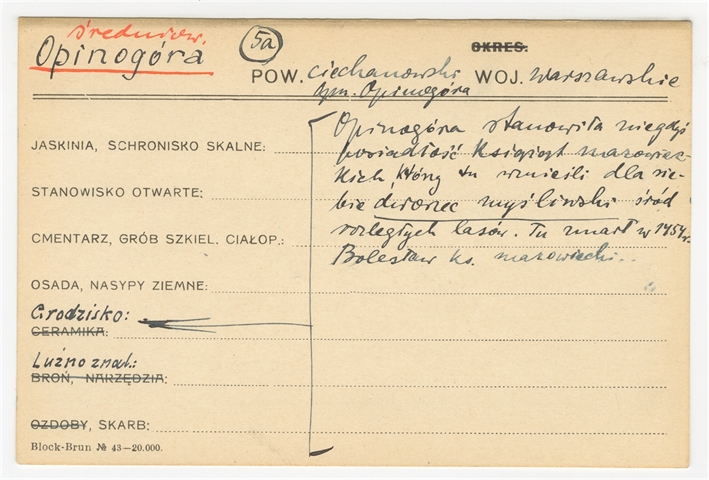 średniow.
Opinogóra
5a
OKRES:
POW. Ciechanowski WOJ. Warszawskie
gm. Opinogóra
Opinogóra stanowiła niegdyś
posiadłość Książąt mazowiec-
kich, którzy tu wznieśli dla sie-
bie dworzec myśliwski śród
rozległych lasów. Tu zmarł w 1454 r.
Bolesław ks. mazowiecki..
JASKINIA, SCHRONISKO SKALNE:
STANOWISKO OTWARTE:
CMENTARZ, GRÓB SZKIEL. CIAŁOP.:
OSADA, NASYPY ZIEMNE:
Grodzisko:
CERAMIKA:
Luźno znal.:
BROŃ, NARZĘDZIA:
OZDOBY, SKARB:
Block-Brun № 43—20.000.